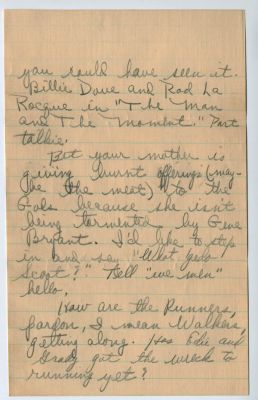 you could have seen it.
Billie Dove and Rod La
Rocque in "The Man
and The Moment." Part
talkie.
But your mother is
giving burnt offerings (may-
be the meat) to the
Gods because she isn't
being tormented by Gene
Bryant. I'd like to step
in and say "What yuh
Scoot?" Tell "we men"
hello.
How are the Runners,
pardon, I mean Walkers,
getting along. Has Edie and
Grady got the wreck to
running yet?